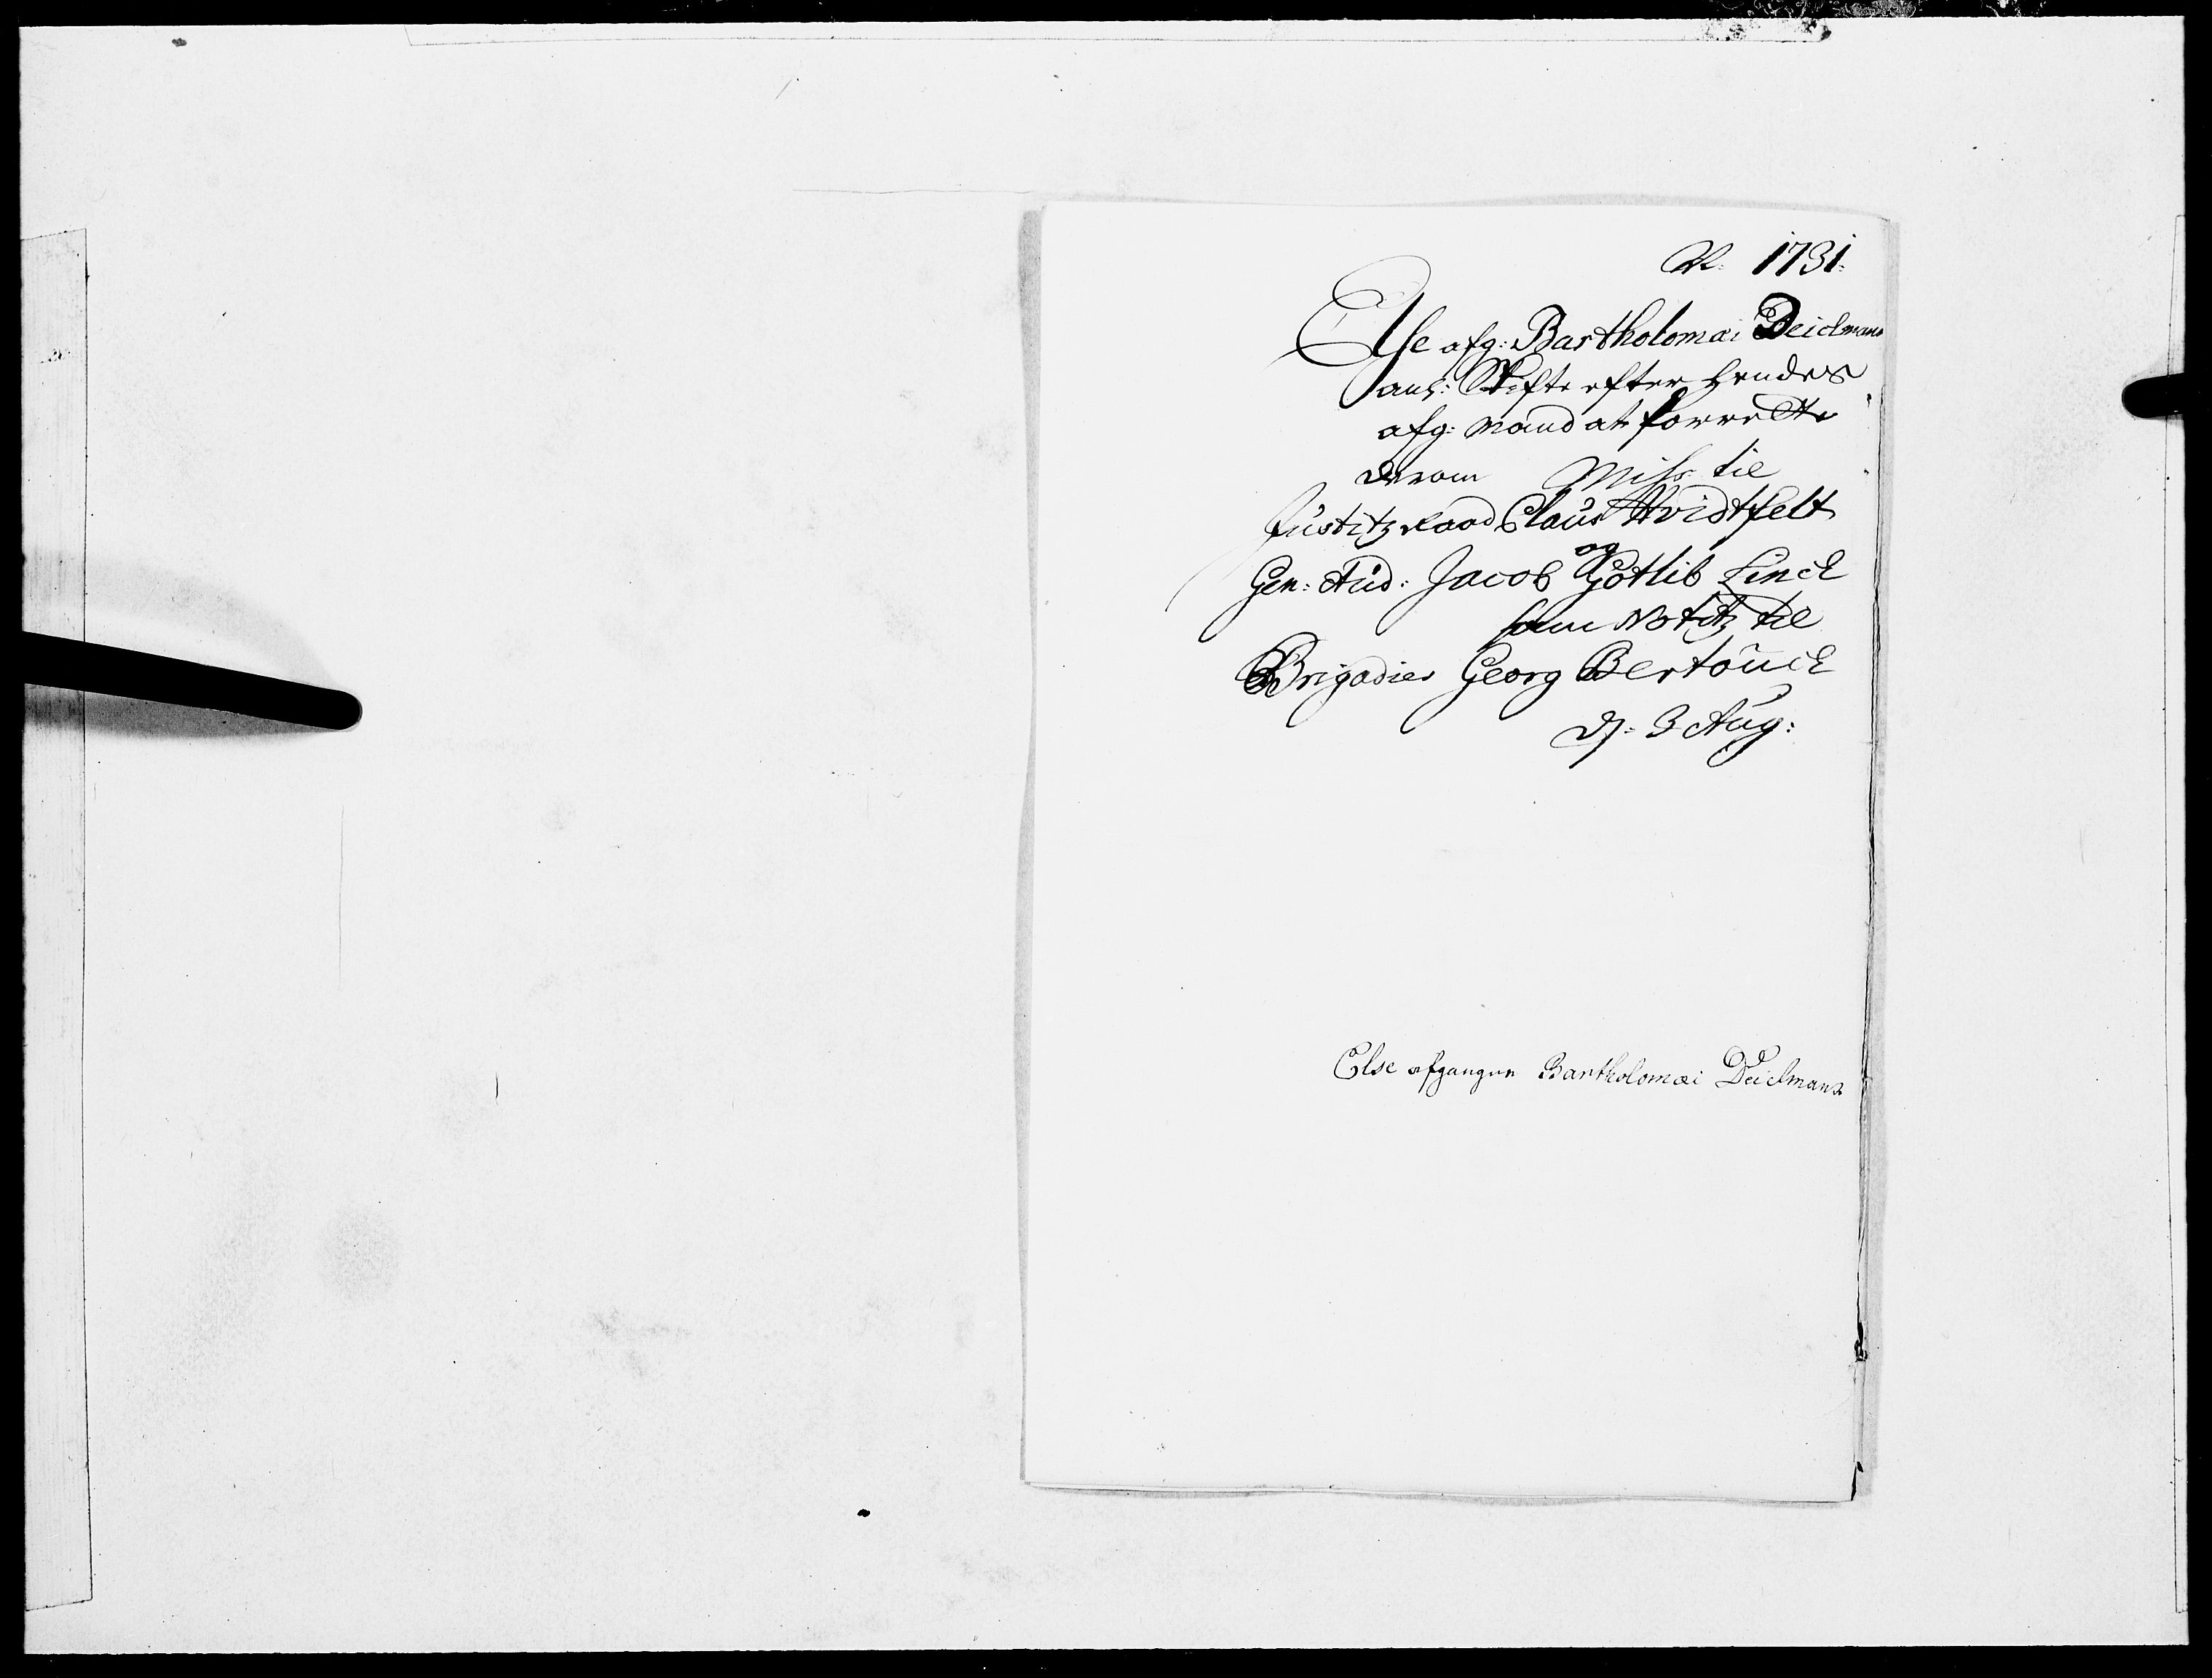 A: 1731.
Else afg: Bartholomæi Deichmans
anl: Skifte efter hendes
afg: Mand at forrette
derom Miss: til
Justitz Raad Claus Hvidtfelt
og
Gen: Aud: Jacob Gotlib Linck
samt Notitz til
Brigadier Georg Bertouch
d: 3 Aug:
Else afgangne Bartholomæi Deichmans